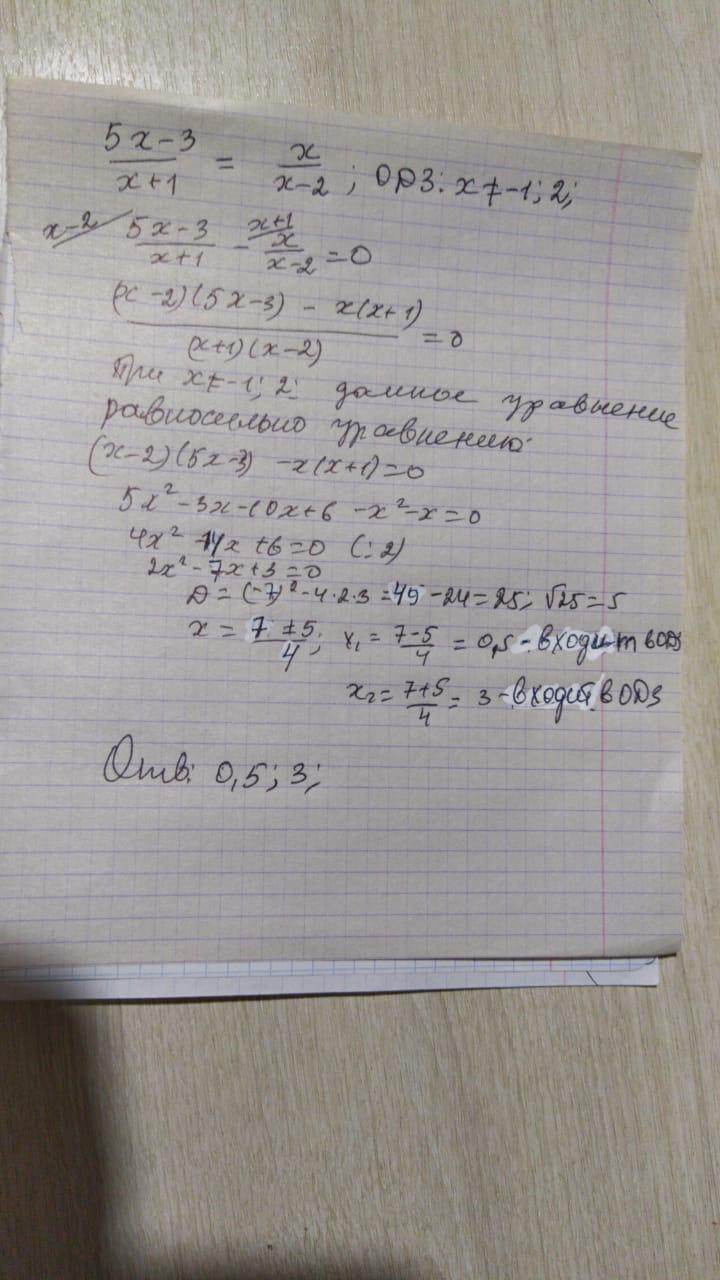 5x-3/x+1 = x/x-2; ОДЗ: x≠-1; 2;
x-2/ 5x-3/x+1 - x+1/ x/x-2 = 0
(x-2)(5x-3) - x(x+1)/(x+1)(x-2) = 0
При x≠-1; 2; данное уравнение
равносильно уравнению:
(x-2)(5x-3) -x(x+1)=0
5x²-3x-10x+6 -x²-x=0
4x²-14x+6=0 (:2)
2x²-7x+3=0
D=(-7)²-4·2·3=49-24=25; √25=5
x = 7±5/4; x₁ = 7-5/4 = 0,5 - входит в ОДЗ
x₂ = 7+5/4 = 3 - входит в ОДЗ
Отв: 0,5; 3;